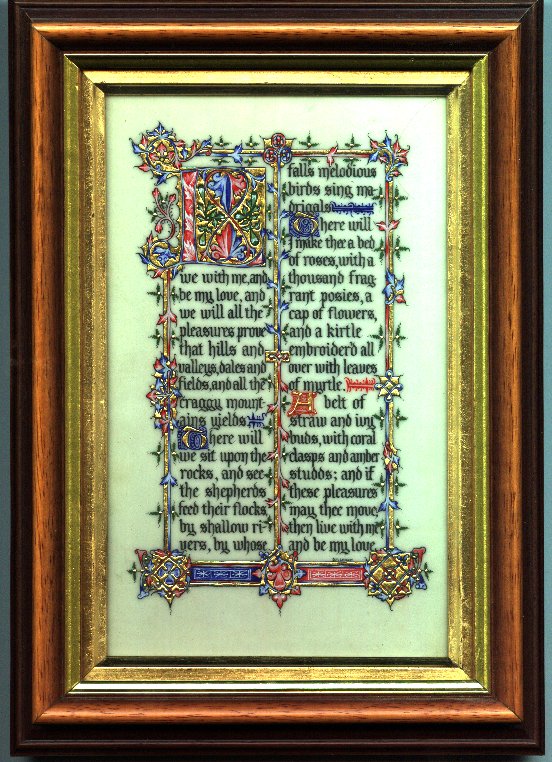 ive with me, and
be my love, and
we will all the
pleasures prove
that hills and
valleys, dales and
fields, and all the
craggy mount-
ains yields
There will
we sit upon the
rocks, and see
the shepherds
feed their flocks
by shallow ri-
vers, by whose
falls melodious
birds sing ma-
drigals
There will
I make thee a bed
of roses, with a
thousand frag-
rant posies, a
cap of flowers,
and a kirtle
embroider'd all
over with leaves
of myrtle.
A belt of
straw and ivy
buds, with coral
clasps and amber
studds; and if
these pleasures
may thee move,
then live with me
and be my love.